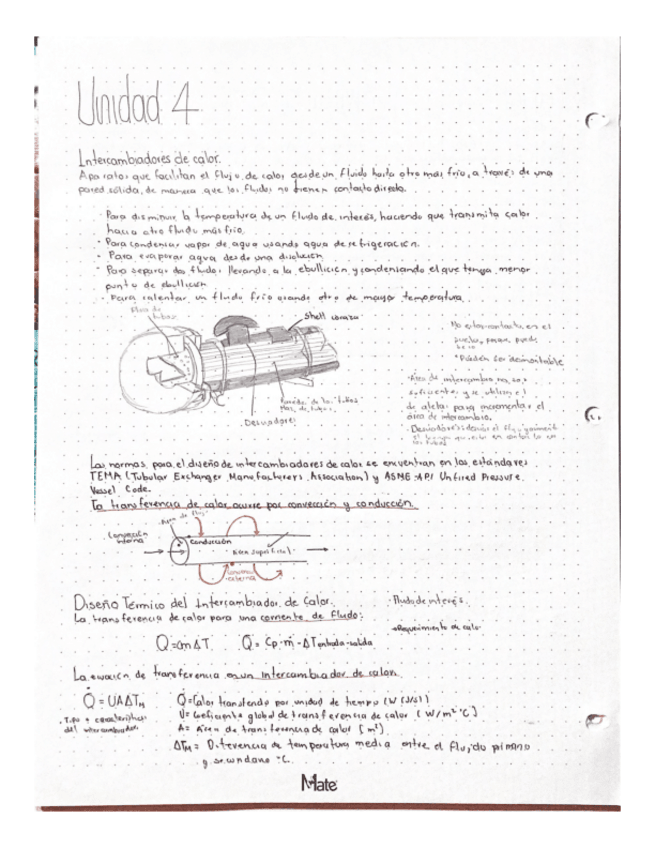 Unidad 4
Intercambiadores de calor.
Aparatos que facilitan el flujo de calor desde un fluido hasta otro más frío, a través de una
pared sólida, de manera que los fluidos no tienen contacto directo.
· Para disminuir la temperatura de un fluido de interés, haciendo que transmita calor
hacia otro fluido más frío.
· Para condensar vapor de agua usando agua de refrigeración.
· Para evaporar agua desde una disolución
· Para separar dos fluidos llevando a la ebullición y condensando el que tenga menor
punto de ebullición
· Para calentar un fluido frío usando otro de mayor temperatura.
Shell coraza
No están contacto en el
suelo, porque puede
· Pueden ser desmontable
· Área de intercambio no es
suficiente, y se utilizan el
de aletas para incrementar el
área de intercambio.
Paredes de los tubos
Desviadores
Las normas para el diseño de intercambiadores de calor se encuentran en los estándares
TEMA (Tubular Exchanger Manufacturers Association) y ASME-API Unfired Pressure
Vessel Code.
La transferencia de calor ocurre por convección y conducción.
Área de flujo
Convección
interna
Conducción
Área superficial
Convección
externa
Diseño Térmico del Intercambiador de Calor.
· Fluido de interés.
La transferencia de calor para una corriente de fluido:
Requerimiento de calor
Q=cmΔT Q̇ = Cp·ṁ·ΔTentrada-salida
La ecuación de transferencia en un intercambiador de calor.
Q̇ = UAΔTM
Q̇=Calor transferido por unidad de tiempo (W (J/s))
· Tipo y características
del intercambiador
U=Coeficiente global de transferencia de calor (W/m²°C)
A= Área de transferencia de calor (m²)
ΔTM= Diferencia de temperatura media entre el fluido primario
y secundario °C.
Mate